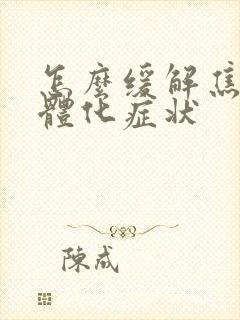 怎麼缓解焦
體化症状
陳成